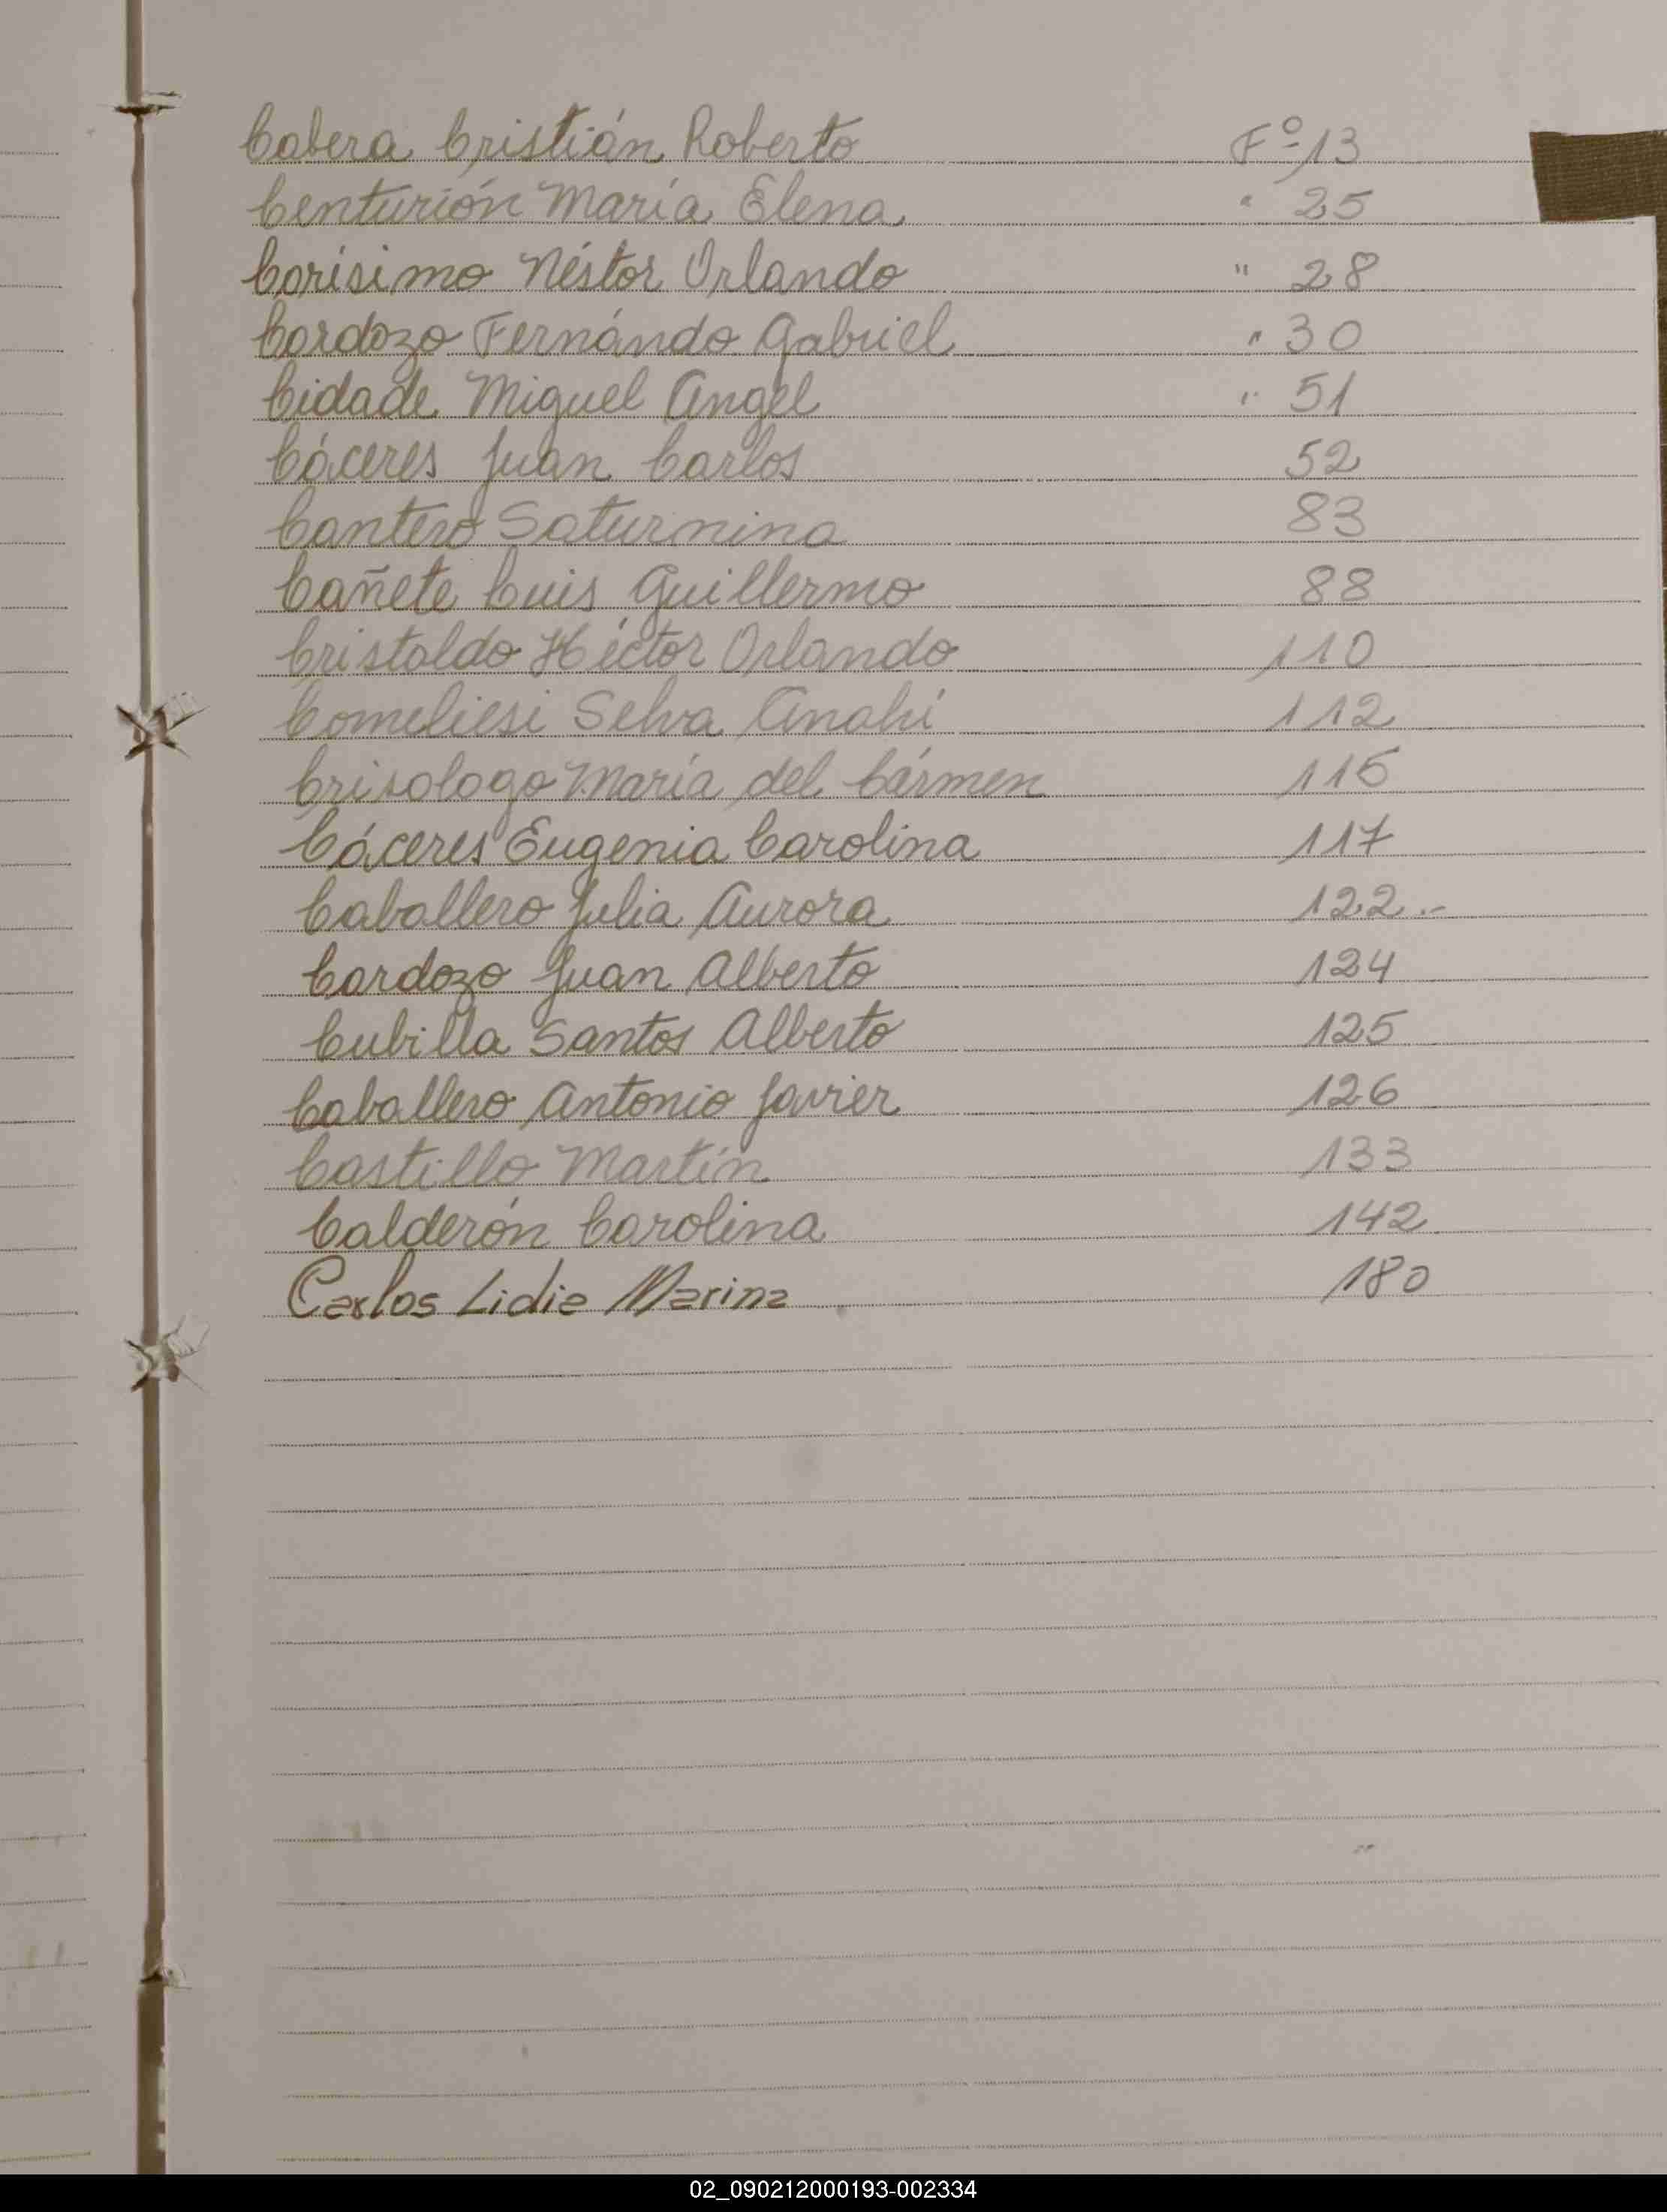 Cabera Cristián Roberto Fº 13
Centurión María Elena " 25
Carísimo Néstor Orlando " 28
Cardozo Fernándo Gabriel " 30
Cidade Miguel Angel " 51
Cáceres Juan Carlos 52
Cantero Saturnina 83
Cañete Luis Guillermo 88
Cristaldo Héctor Orlando 110
Comeliesi Selva Anahí 112
Crisologo María del Cármen 115
Cáceres Eugenia Carolina 117
Caballero Julia Aurora 122.-
Cardozo Juan Alberto 124
Cubilla Santos Alberto 125
Caballero Antonio Javier 126
Castillo Martín 133
Calderón Carolina 142
Carlos Lidia Marina 180
02_090212000193-002334